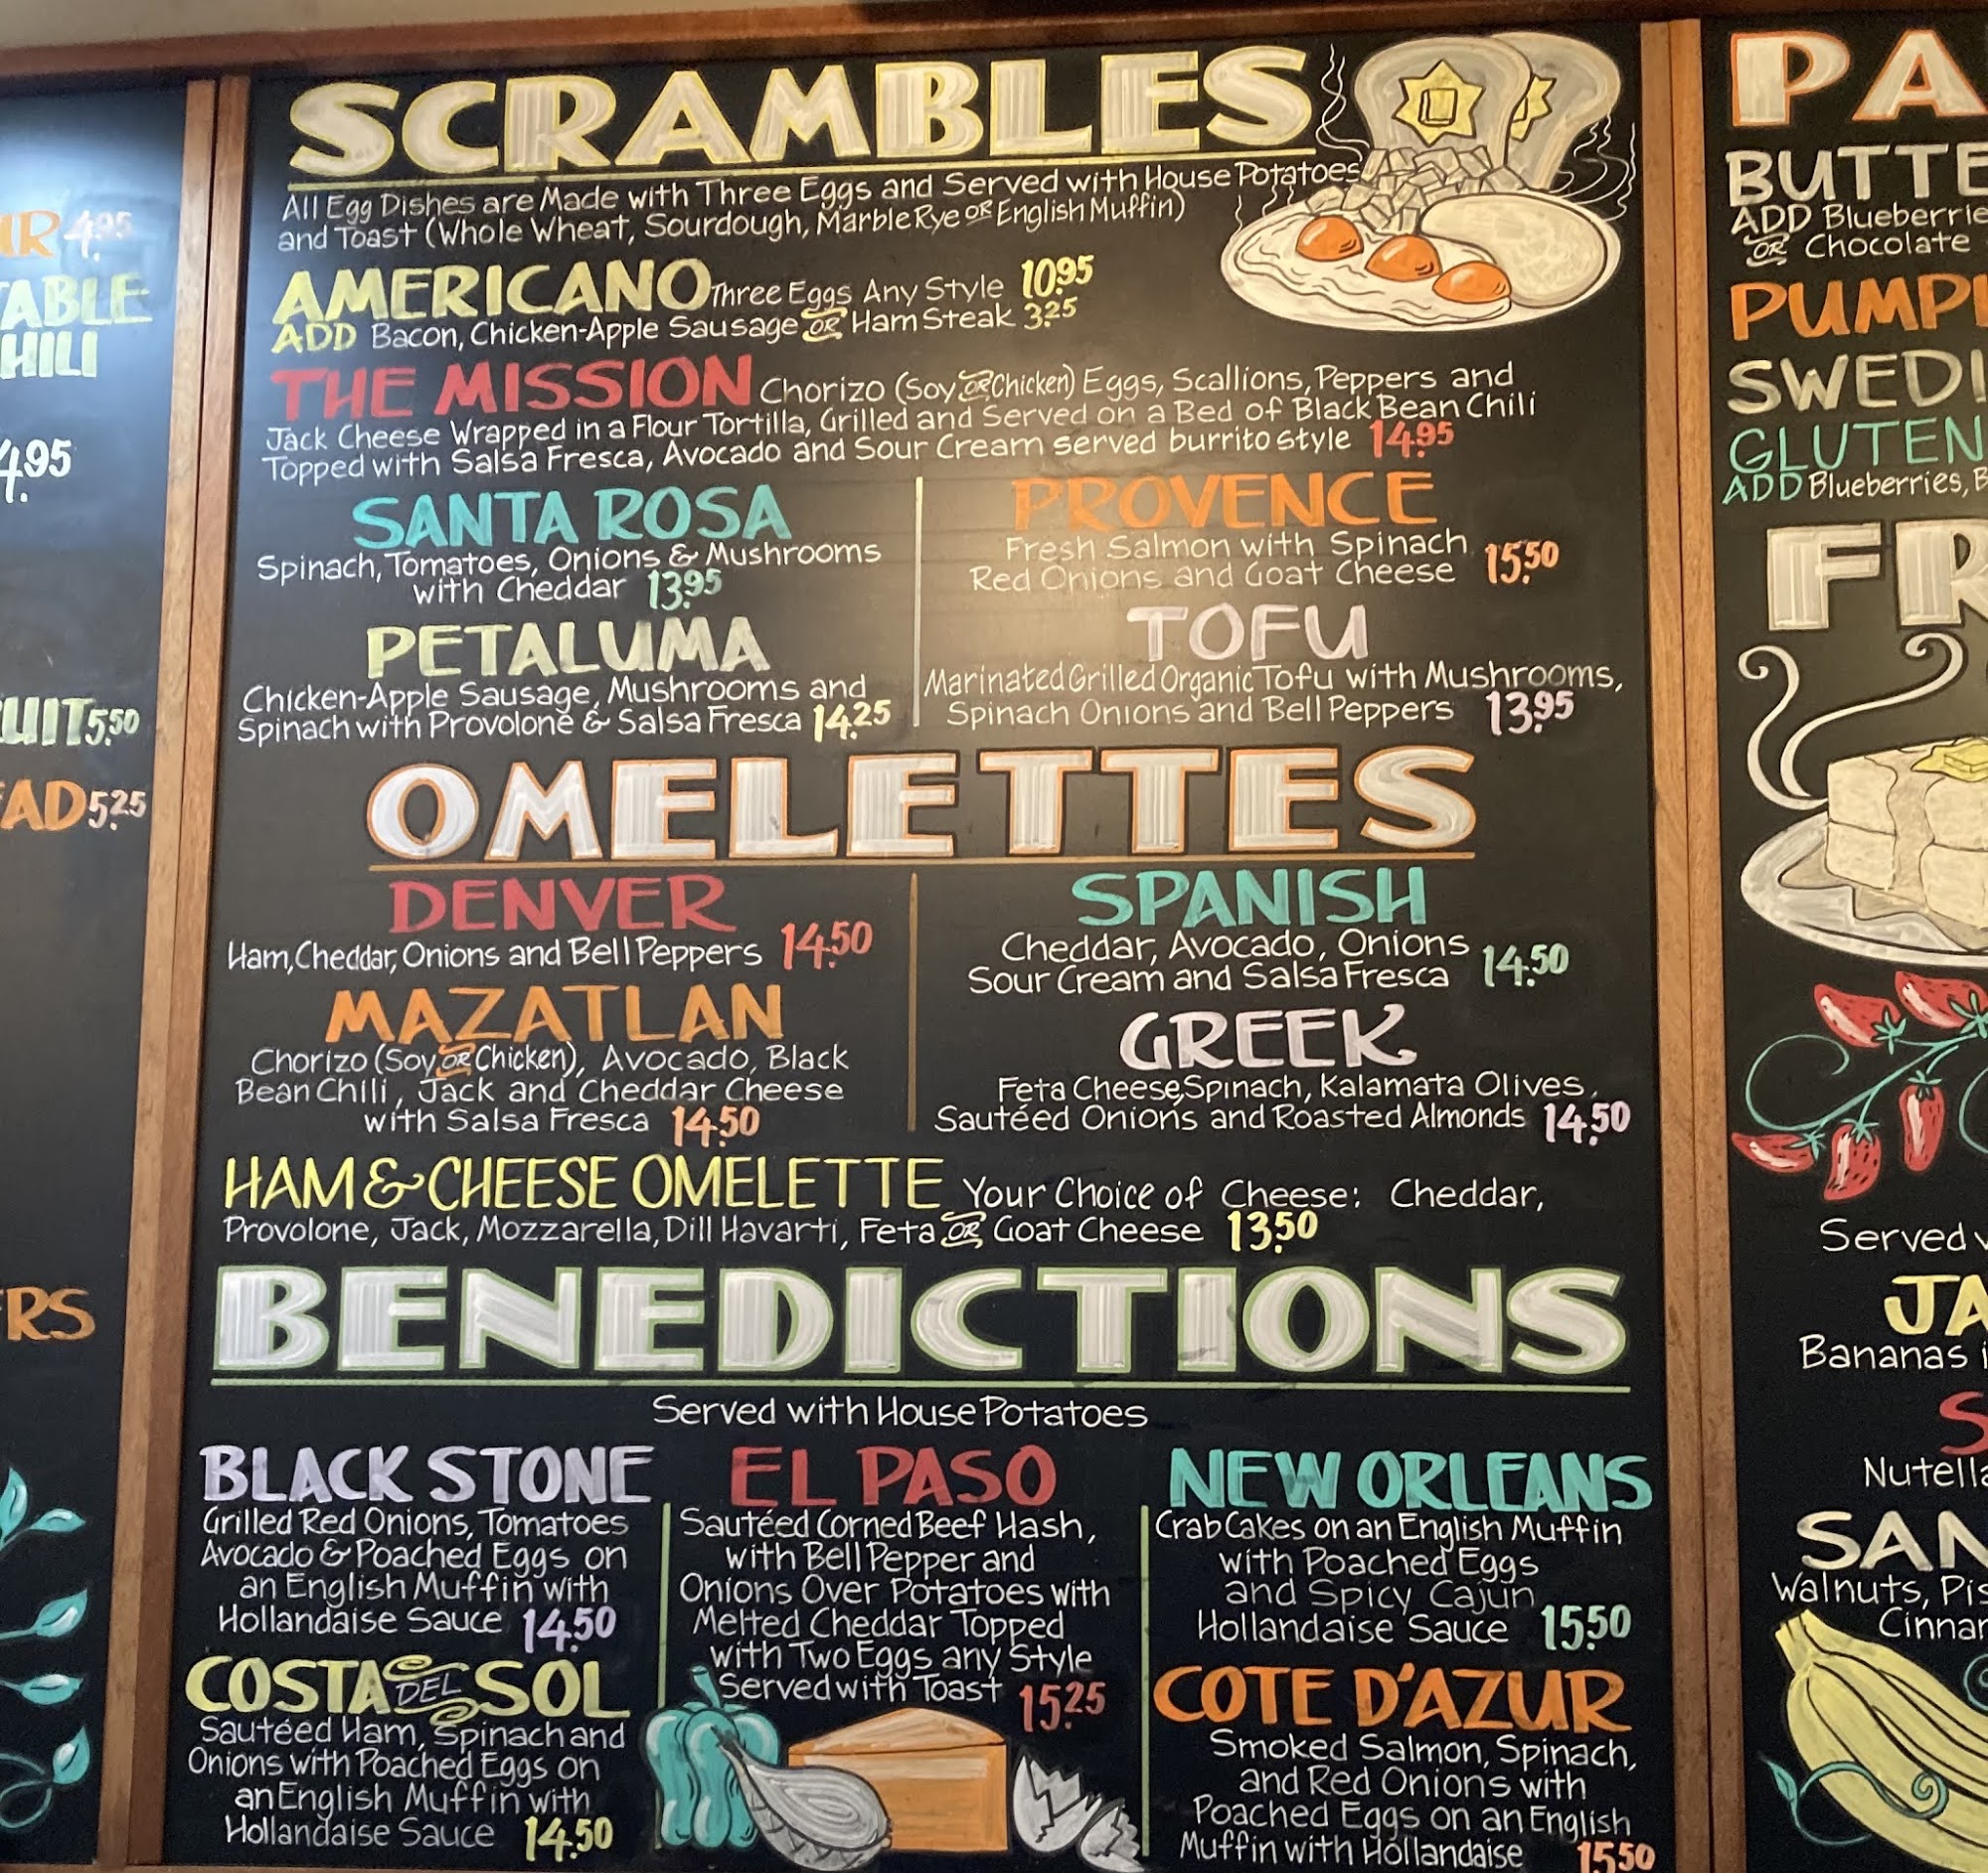 UR 4.95
TABLE
HILI
4.95
UIT 5.50
AD 5.25
ERS
SCRAMBLES
All Egg Dishes are Made with Three Eggs and Served with House Potatoes
and Toast (Whole Wheat, Sourdough, Marble Rye OR English Muffin)
AMERICANO Three Eggs Any Style 10.95
ADD Bacon, Chicken-Apple Sausage OR Ham Steak 3.25
THE MISSION Chorizo (Soy OR Chicken) Eggs, Scallions, Peppers and
Jack Cheese Wrapped in a Flour Tortilla, Grilled and Served on a Bed of Black Bean Chili
Topped with Salsa Fresca, Avocado and Sour Cream served burrito style 14.95
SANTA ROSA
Spinach, Tomatoes, Onions & Mushrooms
with Cheddar 13.95
PETALUMA
Chicken-Apple Sausage, Mushrooms and
Spinach with Provolone & Salsa Fresca 14.25
PROVENCE
Fresh Salmon with Spinach
Red Onions and Goat Cheese 15.50
TOFU
Marinated Grilled Organic Tofu with Mushrooms,
Spinach Onions and Bell Peppers 13.95
OMELETTES
DENVER
Ham, Cheddar, Onions and Bell Peppers 14.50
MAZATLAN
Chorizo (Soy OR Chicken), Avocado, Black
Bean Chili, Jack and Cheddar Cheese
with Salsa Fresca 14.50
SPANISH
Cheddar, Avocado, Onions
Sour Cream and Salsa Fresca 14.50
GREEK
Feta Cheese, Spinach, Kalamata Olives,
Sautéed Onions and Roasted Almonds 14.50
HAM & CHEESE OMELETTE Your Choice of Cheese: Cheddar,
Provolone, Jack, Mozzarella, Dill Havarti, Feta OR Goat Cheese 13.50
BENEDICTIONS
Served with House Potatoes
BLACK STONE
Grilled Red Onions, Tomatoes
Avocado & Poached Eggs on
an English Muffin with
Hollandaise Sauce 14.50
COSTA DEL SOL
Sautéed Ham, Spinach and
Onions with Poached Eggs on
an English Muffin with
Hollandaise Sauce 14.50
EL PASO
Sautéed Corned Beef Hash,
with Bell Pepper and
Onions Over Potatoes with
Melted Cheddar Topped
with Two Eggs any Style
Served with Toast 15.25
NEW ORLEANS
Crab Cakes on an English Muffin
with Poached Eggs
and Spicy Cajun
Hollandaise Sauce 15.50
COTE D'AZUR
Smoked Salmon, Spinach,
and Red Onions with
Poached Eggs on an English
Muffin with Hollandaise 15.50
PA
BUTTE
ADD Blueberrie
OR Chocolate
PUMP
SWEDI
GLUTEN
ADD Blueberries, B
FR
Served
JA
Bananas i
S
Nutella
SAN
Walnuts, Pis
Cinnar